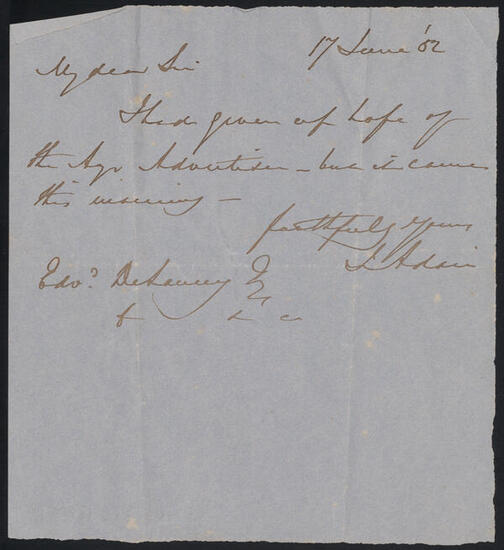 17 June '52
My dear Sir
I had given up hope of
the Ayr Advertiser – but it came
this morning –
faithfully yours
J Adair
Edwd Delaney Esq
&c &c